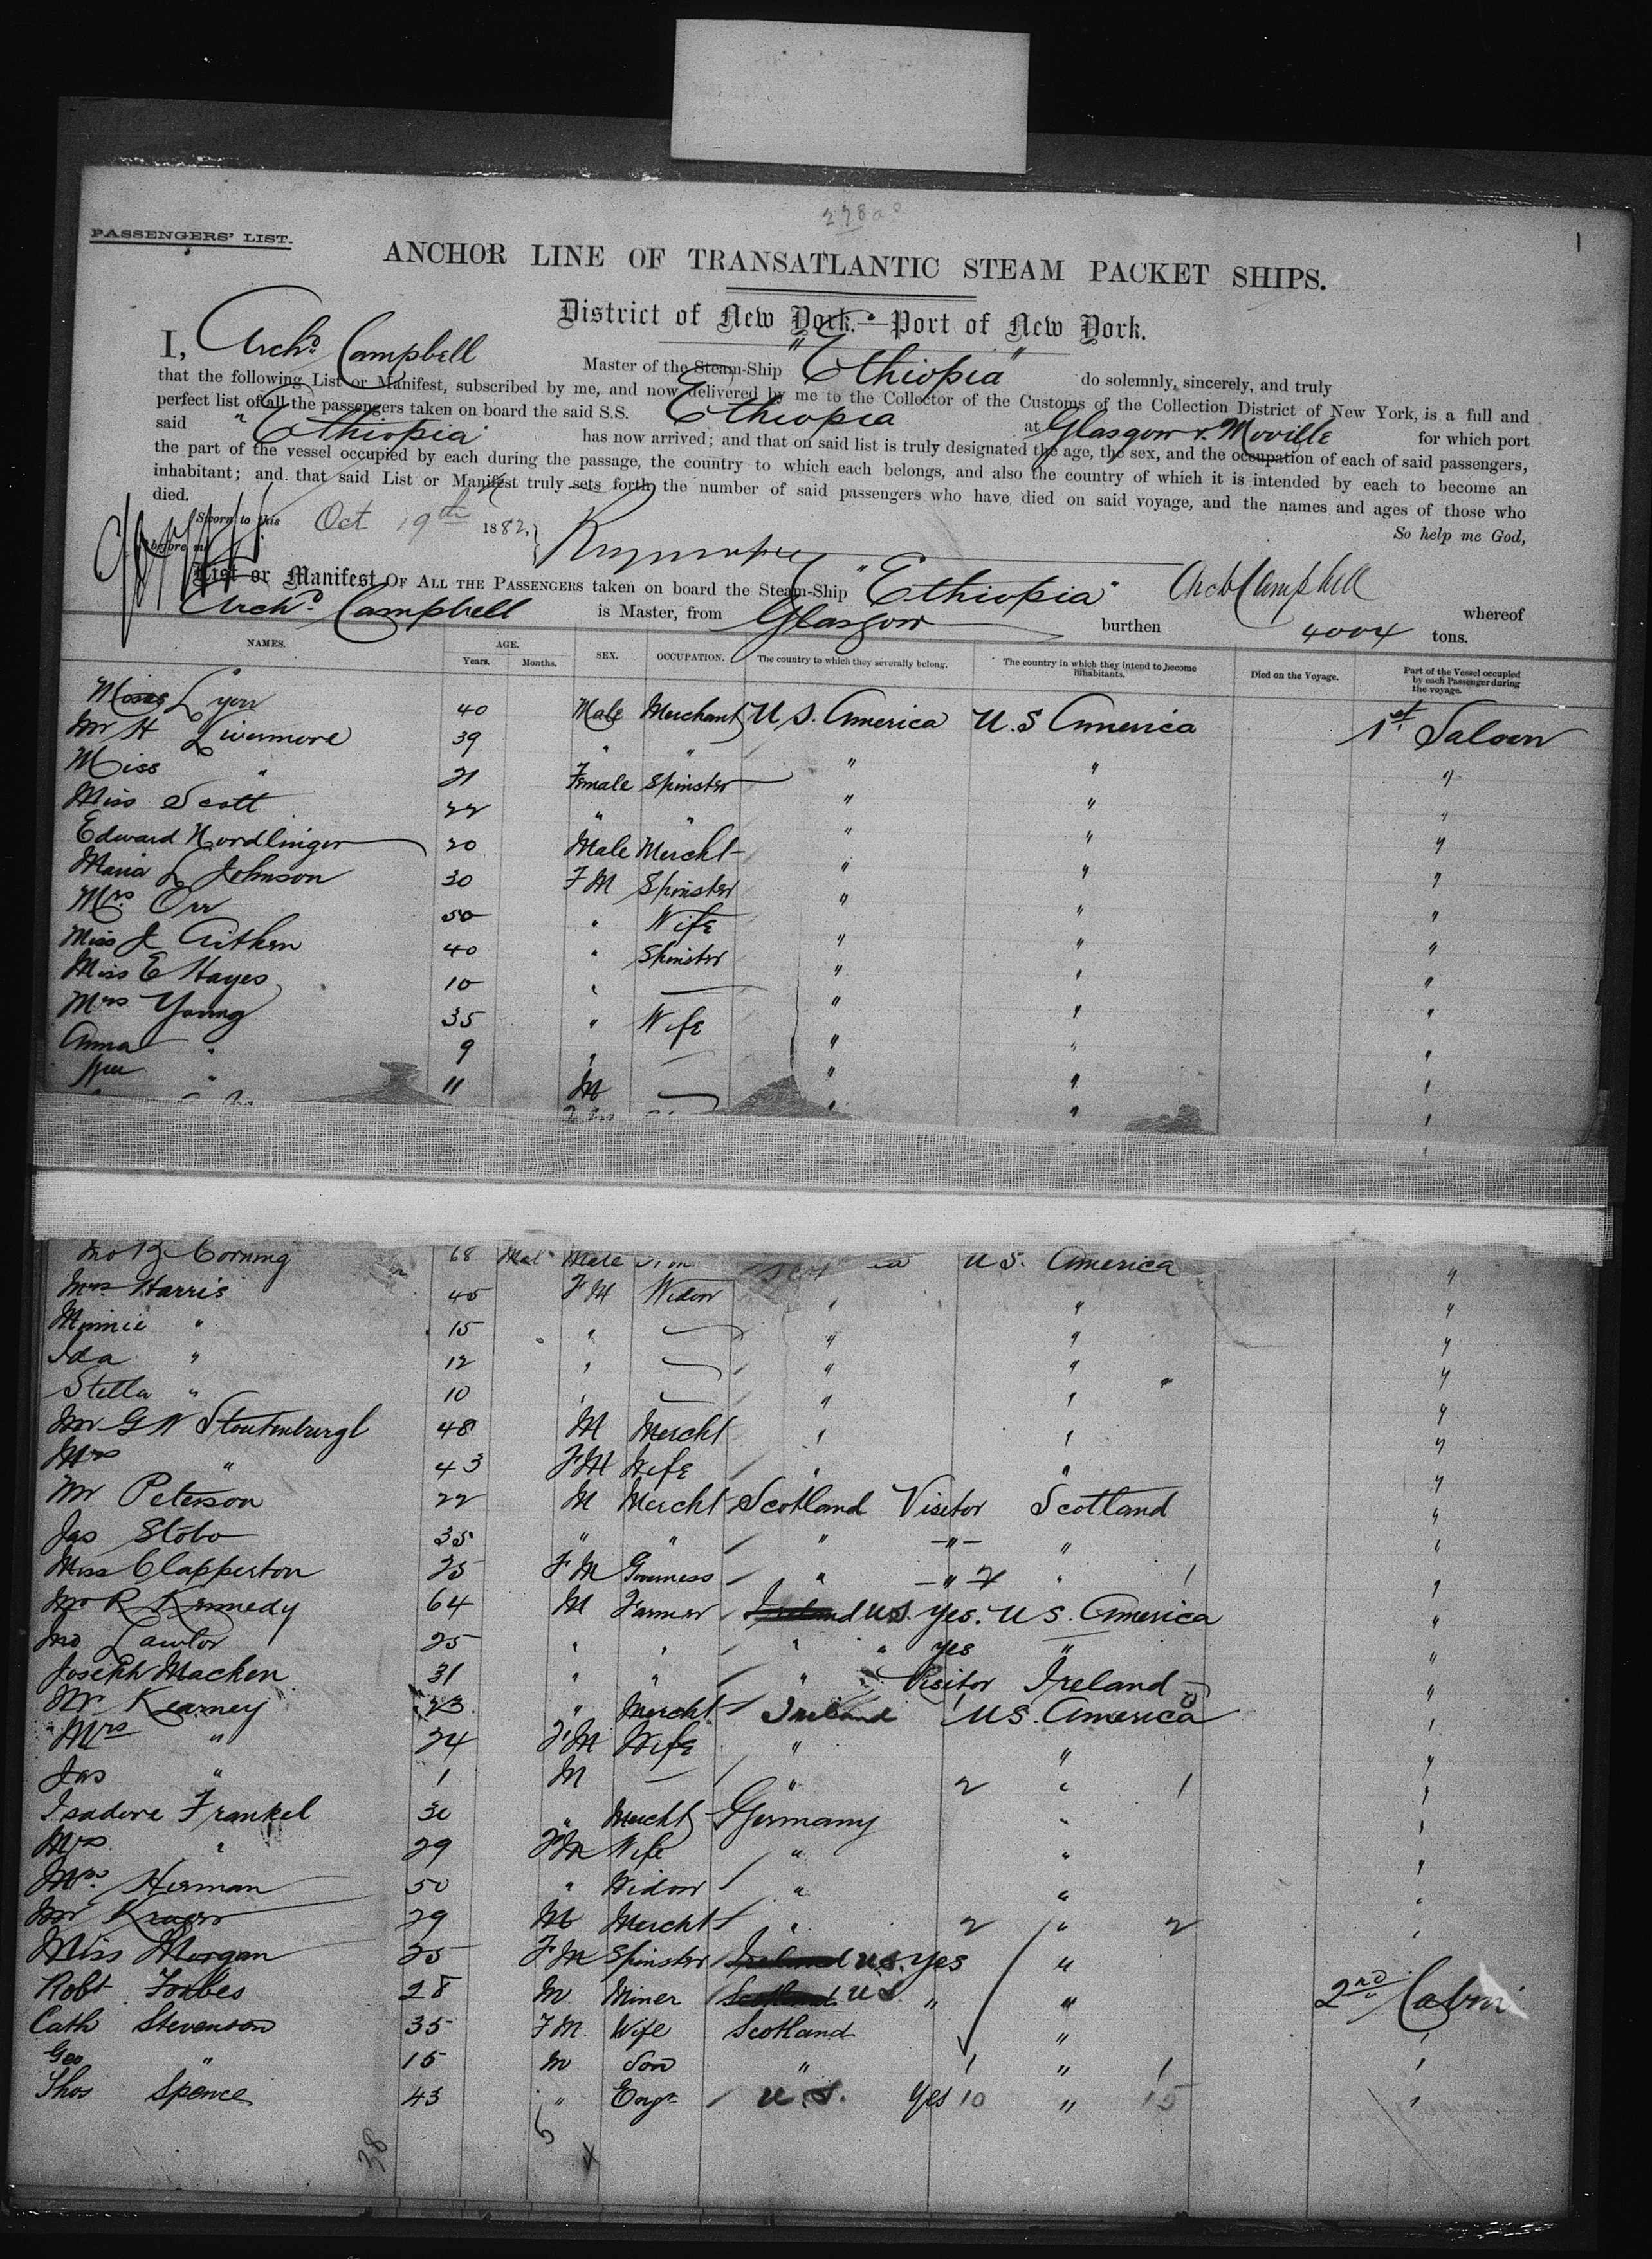 PASSENGERS' LIST.
1
ANCHOR LINE OF TRANSATLANTIC STEAM PACKET SHIPS.
District of New York.—Port of New York.
I, Archd. Campbell Master of the Steam-Ship "Ethiopia" do solemnly, sincerely, and truly
that the following List or Manifest, subscribed by me, and now delivered by me to the Collector of the Customs of the Collection District of New York, is a full and
perfect list of all the passengers taken on board the said S.S. Ethiopia at Glasgow & Moville for which port
said "Ethiopia" has now arrived; and that on said list is truly designated the age, the sex, and the occupation of each of said passengers,
the part of the vessel occupied by each during the passage, the country to which each belongs, and also the country of which it is intended by each to become an
inhabitant; and that said List or Manifest truly sets forth the number of said passengers who have died on said voyage, and the names and ages of those who
died.
So help me God,
Sworn to this Oct 19th 1882.
before me
Arch Campbell
List or Manifest OF ALL THE PASSENGERS taken on board the Steam-Ship "Ethiopia" whereof
Archd. Campbell is Master, from Glasgow burthen 4004 tons.
NAMES. AGE. Years. Months. SEX. OCCUPATION. The country to which they severally belong. The country in which they intend to become inhabitants. Died on the Voyage. Part of the Vessel occupied by each Passenger during the voyage.
Moses Lyon 40 Male Merchant U S. America U.S America 1st Saloon
Mr H Livermore 39 " " " " "
Miss " 21 Female Spinster " " "
Miss Scott 22 " " " " "
Edward Nordlinger 20 Male Mercht " " "
Maria L Johnson 30 F M Spinster " " "
Mrs. Orr 50 " Wife " " "
Miss J Aitken 40 " Spinster " " "
Miss E Hayes 10 " — " " "
Mrs Young 35 " Wife " " "
Anna " 9 " — " " "
" 11 M — " " "
Corning 68 Male U S. America "
Mrs Harris 45 F M Widow " " "
Minnie " 15 " — " " "
Ida " 12 " — " " "
Stella " 10 " — " " "
Mr G W Stoutenburgh 48 M Mercht " " "
Mrs " 43 F M Wife " " "
Mr Peterson 22 M Mercht Scotland Visitor Scotland "
Jas Stobo 35 " " " —"— " "
Miss Clapperton 25 F M Governess " —"— 2 " 1 "
Mr R Kennedy 64 M Farmer Ireland U.S. Yes. U S. America "
Jno Lawlor 25 " " " " Yes " "
Joseph Macken 31 " " " Visitor Ireland "
Mr Kearney 23 " Mercht Ireland U S. America "
Mrs " 24 F M Wife " " "
Jas " 1 M — " 2 " 1 "
Isadore Frankel 30 " Mercht Germany " "
Mrs " 29 F M Wife " " "
Mrs. Herman 50 " Widow " " "
Mr Kruger 29 M Mercht " 2 " 2 "
Miss Morgan 25 F M Spinster Ireland U.S. Yes "
Robt Forbes 28 M Miner Scotland U S. " " 2nd Cabin
Cath Stevenson 35 F M. Wife Scotland " "
Geo " 15 M Son " 1 " 1 "
Thos Spence 43 " Engr U.S. Yes 10 " 15 "
38